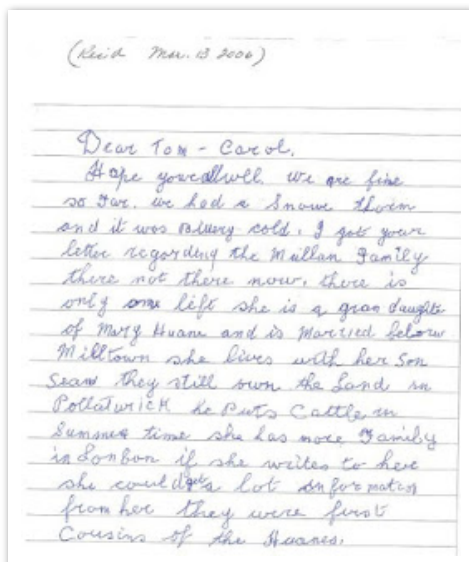 (Rec'd Mar. 13 2006)
Dear Tom - Carol.
Hope your all well. We are fine
so Far. we had a Snow
and it was cold. I got your
letter regarding the Mullan Family
there not there now. there is
only one left she is a gran daughter
of Mary Huane and is Married below
Milltown she lives with her Son
Sean they still own the Land in
Pollaturick he Puts Cattle in
Summer time she has more Family
in London if she writes to her
she could get a lot information
from her they were first
Cousins of the Huanes.